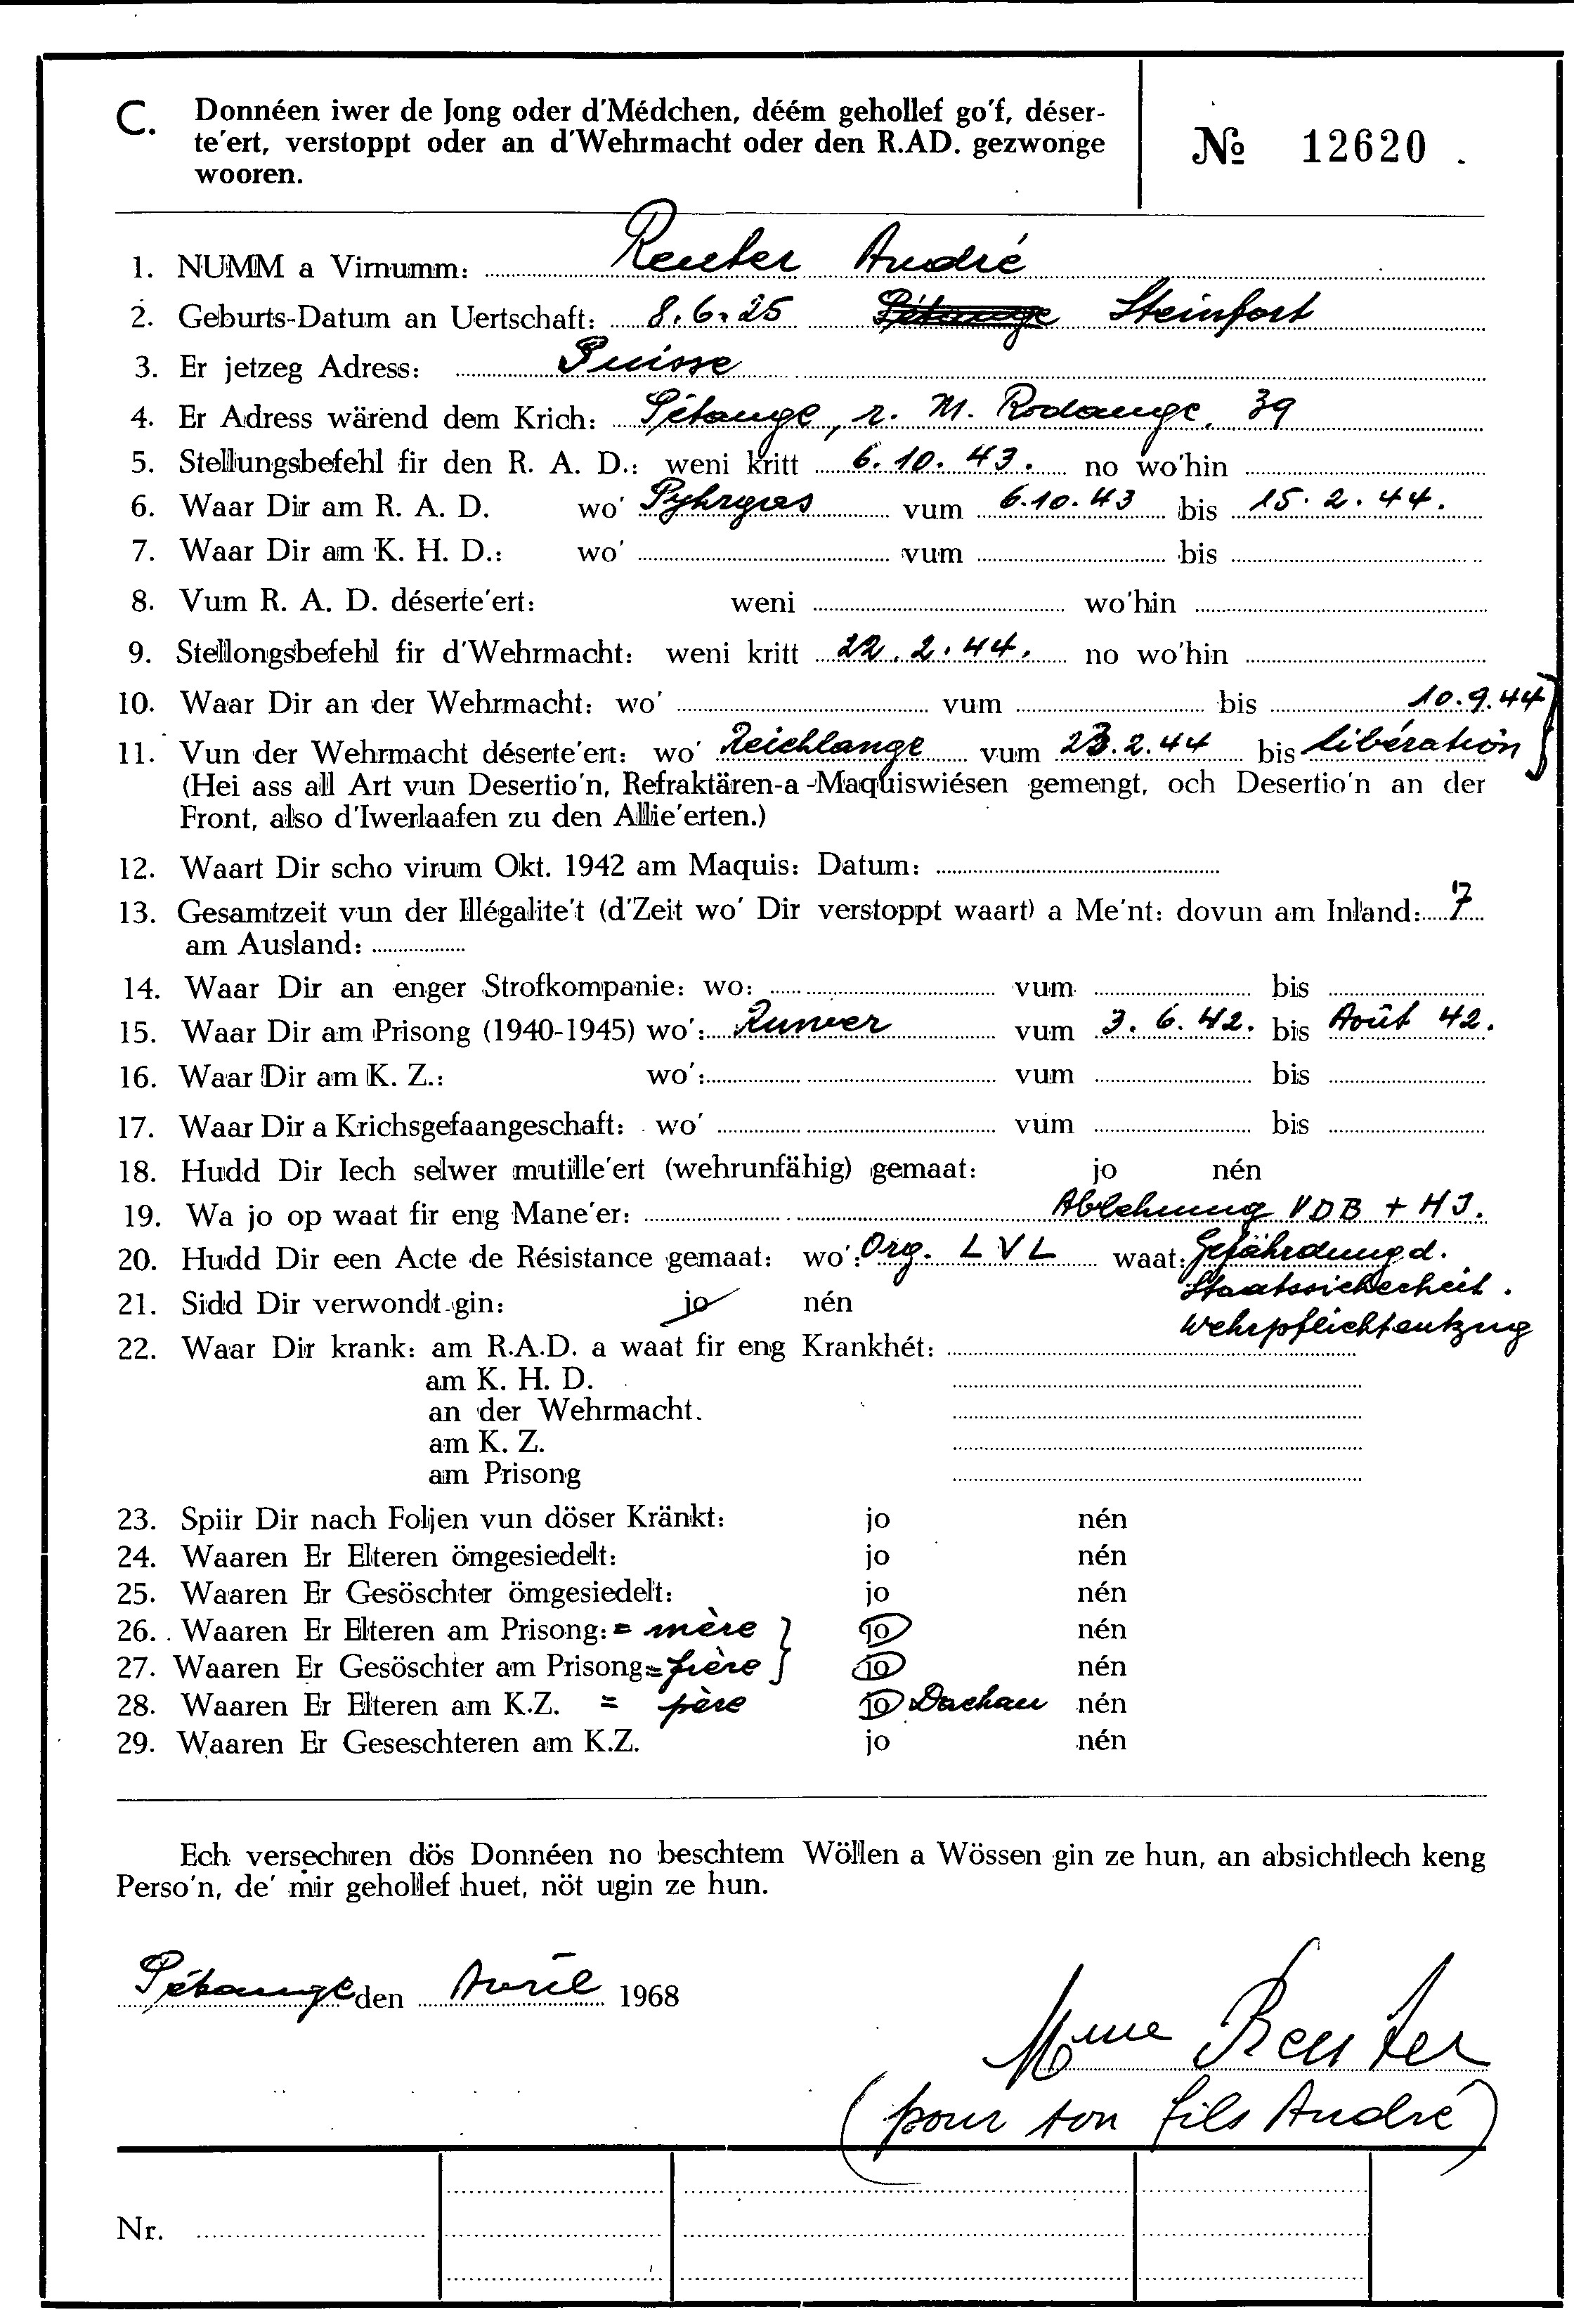 C. Donnéen iwer de Jong oder d'Médchen, déém gehollef go'f, déser-
te'ert, verstoppt oder an d'Wehrmacht oder den R.AD. gezwonge
wooren.
№ 12620
1. NUMM a Virnumm: Reuter André
2. Geburts-Datum an Uertschaft: 8.6.25 Pétange Steinfort
3. Er jetzeg Adress: Suisse
4. Er Adress wärend dem Krich: Pétange, r. M. Rodange, 39
5. Stellungsbefehl fir den R. A. D.: weni kritt 6.10.43. no wo'hin
6. Waar Dir am R. A. D. wo' Pyhrgas vum 6.10.43 bis 15.2.44.
7. Waar Dir am K. H. D.: wo' vum bis
8. Vum R. A. D. déserte'ert: weni wo'hin
9. Stellongsbefehl fir d'Wehrmacht: weni kritt 22.2.44. no wo'hin
10. Waar Dir an der Wehrmacht: wo' vum bis 10.9.44
11. Vun der Wehrmacht déserte'ert: wo' Reichlange vum 23.2.44 bis libération
(Hei ass all Art vun Desertio'n, Refraktären-a-Maquiswiésen gemengt, och Desertio'n an der
Front, also d'Iwerlaafen zu den Allie'erten.)
12. Waart Dir scho virum Okt. 1942 am Maquis: Datum:
13. Gesamtzeit vun der Illégalite't (d'Zeit wo' Dir verstoppt waart) a Me'nt: dovun am Inland: 7
am Ausland:
14. Waar Dir an enger Strofkompanie: wo: vum bis
15. Waar Dir am Prisong (1940-1945) wo': vum 3.6.42. bis Août 42.
16. Waar Dir am K. Z.: wo': vum bis
17. Waar Dir a Krichsgefaangeschaft: wo' vum bis
18. Hudd Dir Iech selwer mutille'ert (wehrunfähig) gemaat: jo nén
19. Wa jo op waat fir eng Mane'er: Ablehnung VDB + HJ.
20. Hudd Dir een Acte de Résistance gemaat: wo': Org. LVL waat: Gefährdung d.
Staatssicherheit.
21. Sidd Dir verwondt gin: jo nén
Wehrpflichtentzug
22. Waar Dir krank: am R.A.D. a waat fir eng Krankhét:
am K. H. D.
an der Wehrmacht.
am K. Z.
am Prisong
23. Spiir Dir nach Foljen vun döser Kränkt: jo nén
24. Waaren Er Elteren ömgesiedelt: jo nén
25. Waaren Er Gesöschter ömgesiedelt: jo nén
26. Waaren Er Elteren am Prisong: = mère } jo nén
27. Waaren Er Gesöschter am Prisong = frère } jo nén
28. Waaren Er Elteren am K.Z. = père jo Dachau nén
29. Waaren Er Geseschteren am K.Z. jo nén
Ech versechren dös Donnéen no beschtem Wöllen a Wössen gin ze hun, an absichtlech keng
Perso'n, de' mir gehollef huet, nöt ugin ze hun.
Pétange den Avril 1968
Mme Reuter
(pour son fils André)
Nr.